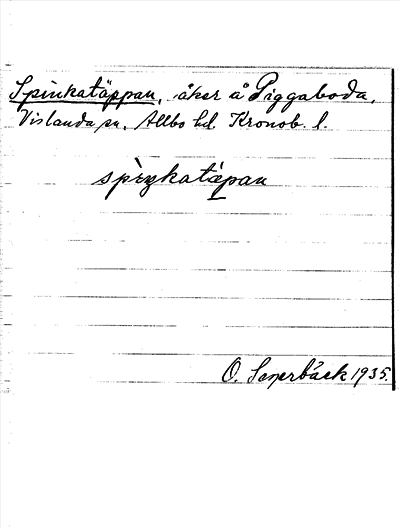 Spinkatäppan, åker å Piggaboda,
Vislanda sn, Allbo hd. Kronob. l.
spìŋkatæ̀pan
O. 1935.